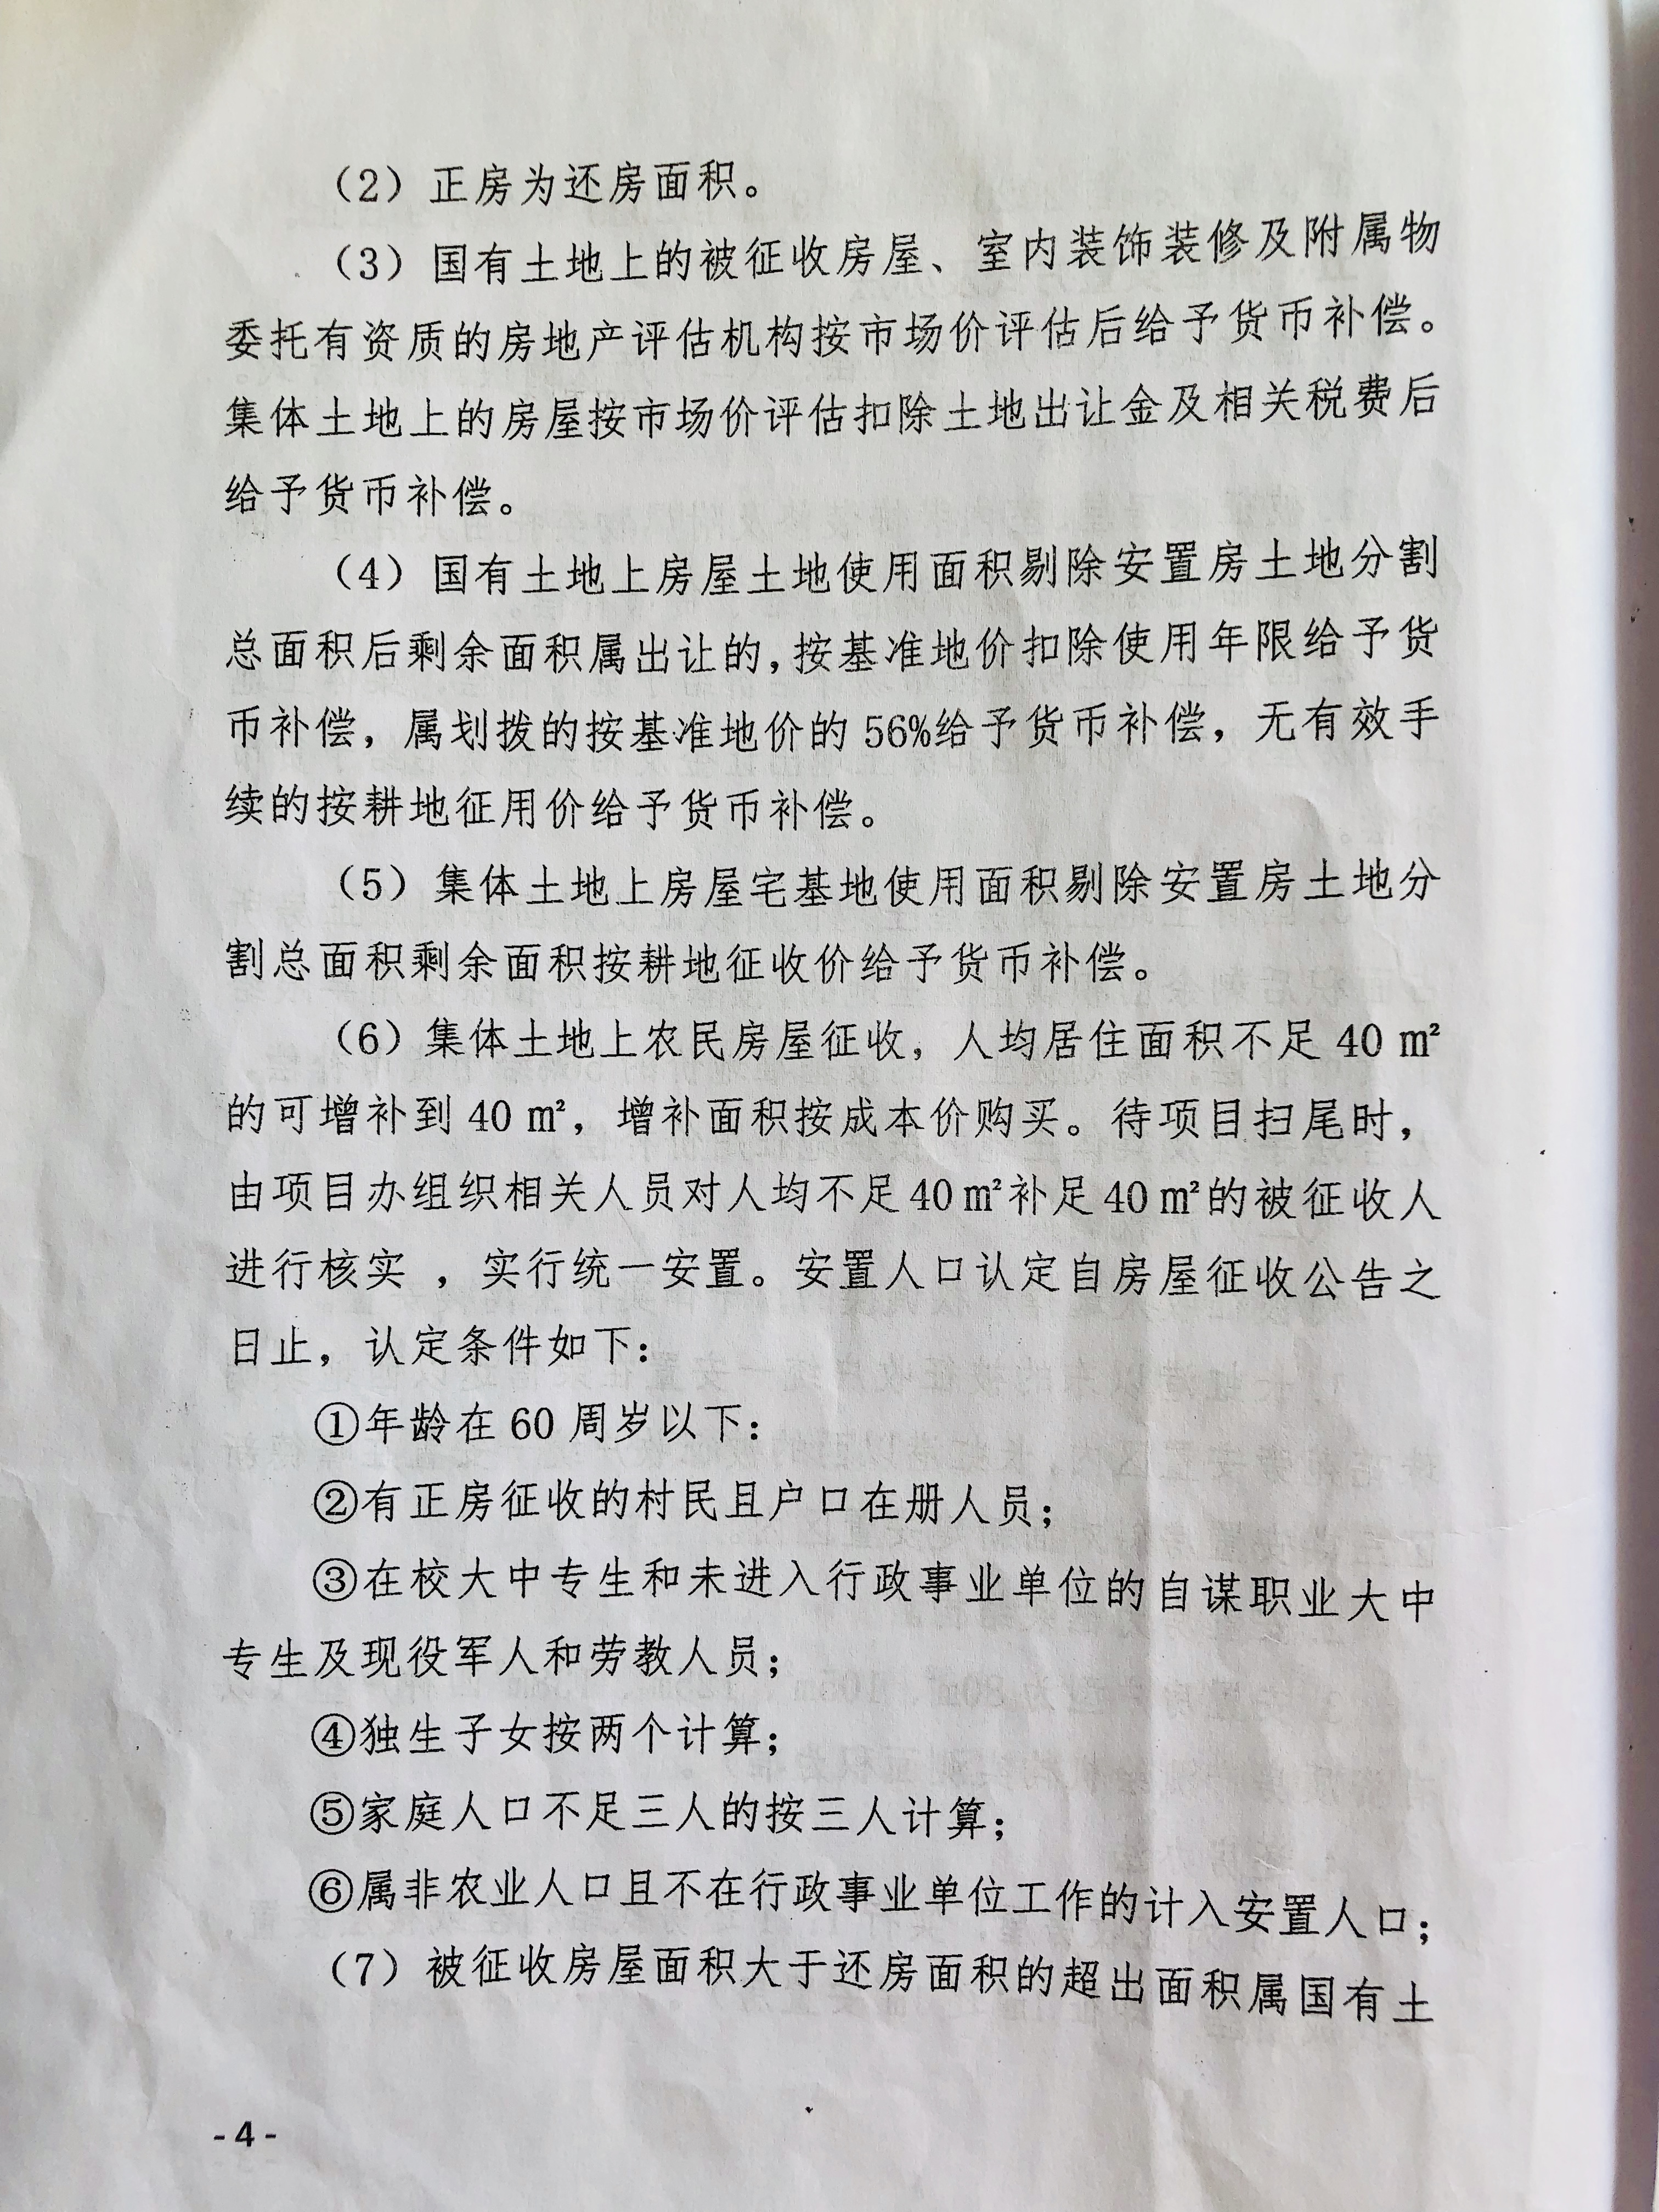 （2）正房为还房面积。
（3）国有土地上的被征收房屋、室内装饰装修及附属物
委托有资质的房地产评估机构按市场价评估后给予货币补偿。
集体土地上的房屋按市场价评估扣除土地出让金及相关税费后
给予货币补偿。
（4）国有土地上房屋土地使用面积剔除安置房土地分割
总面积后剩余面积属出让的，按基准地价扣除使用年限给予货
币补偿，属划拨的按基准地价的 56%给予货币补偿，无有效手
续的按耕地征用价给予货币补偿。
（5）集体土地上房屋宅基地使用面积剔除安置房土地分
割总面积剩余面积按耕地征收价给予货币补偿。
（6）集体土地上农民房屋征收，人均居住面积不足 40 ㎡
的可增补到 40 ㎡，增补面积按成本价购买。待项目扫尾时，
由项目办组织相关人员对人均不足 40 ㎡补足 40 ㎡的被征收人
进行核实 ，实行统一安置。安置人口认定自房屋征收公告之
日止，认定条件如下：
①年龄在 60 周岁以下：
②有正房征收的村民且户口在册人员；
③在校大中专生和未进入行政事业单位的自谋职业大中
专生及现役军人和劳教人员；
④独生子女按两个计算；
⑤家庭人口不足三人的按三人计算；
⑥属非农业人口且不在行政事业单位工作的计入安置人口；
（7）被征收房屋面积大于还房面积的超出面积属国有土
-4-